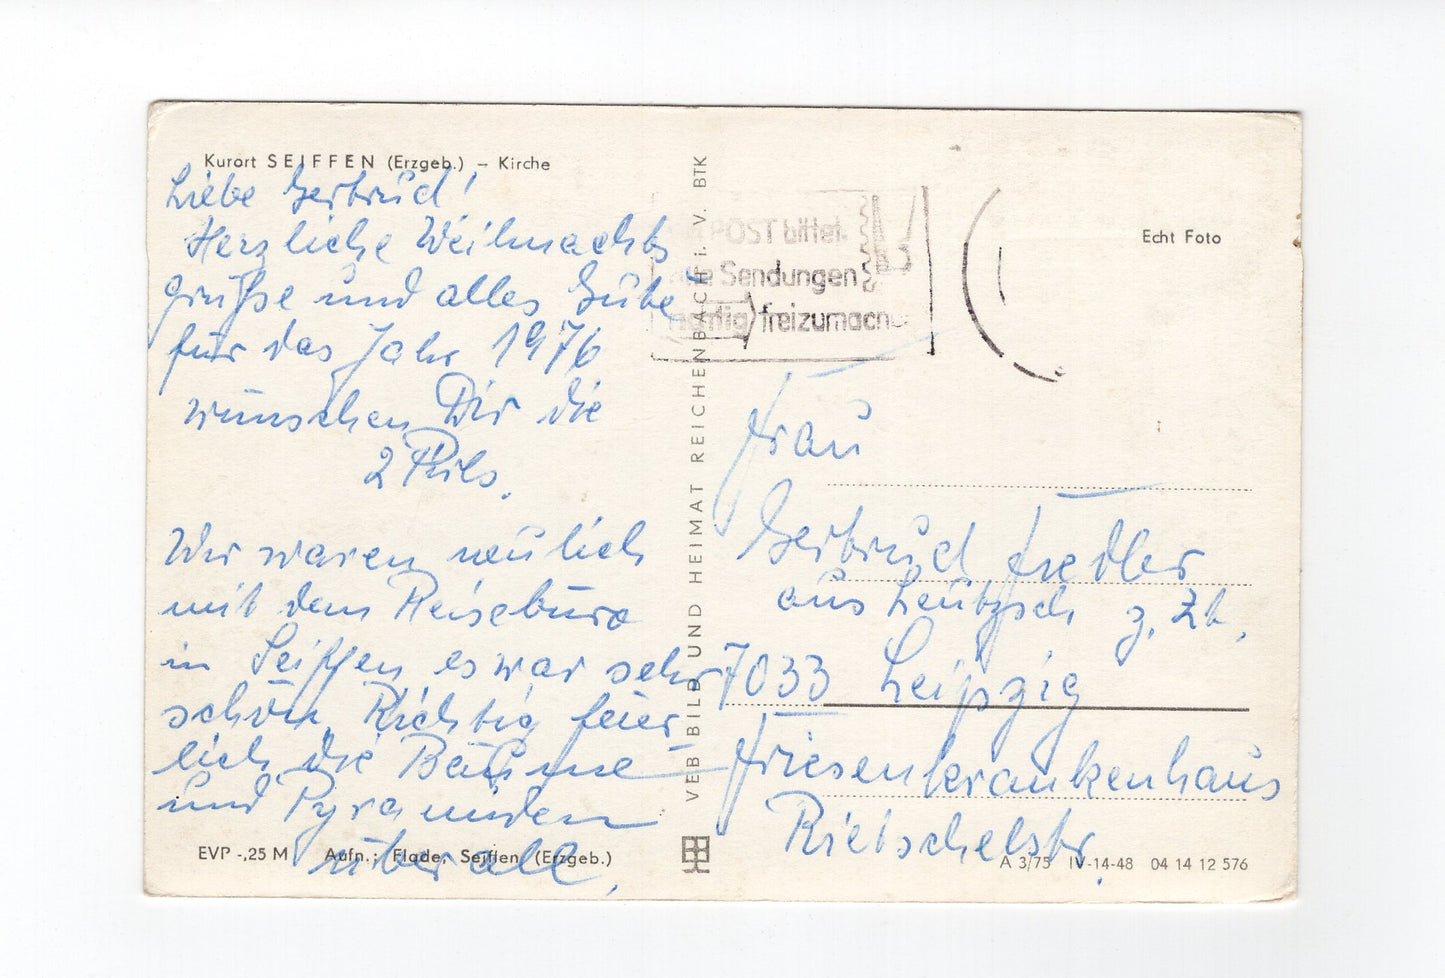 Kurort SEIFFEN (Erzgeb.) – Kirche
Liebe Gertrud!
Herzliche Weihnachts
grüße und alles Gute
für das Jahr 1976
wünschen Dir die
2 Thils.
Wir waren neulich
mit dem Reisebüro
in Seiffen, es war sehr
schön. Richtig feier-
lich die Bäume
und Pyramiden
überall.
EVP -,25 M Aufn.: Flade, Seiffen (Erzgeb.)
VEB BILD UND HEIMAT REICHENBACH i. V. BTK
POST bittet,
Sendungen
richtig freizumachen
Echt Foto
Frau
Gertrud Fiedler
aus Leutzsch z. Zt.
7033 Leipzig
Friesenkrankenhaus
Rietschelstr.
A 3/75 IV-14-48 04 14 12 576